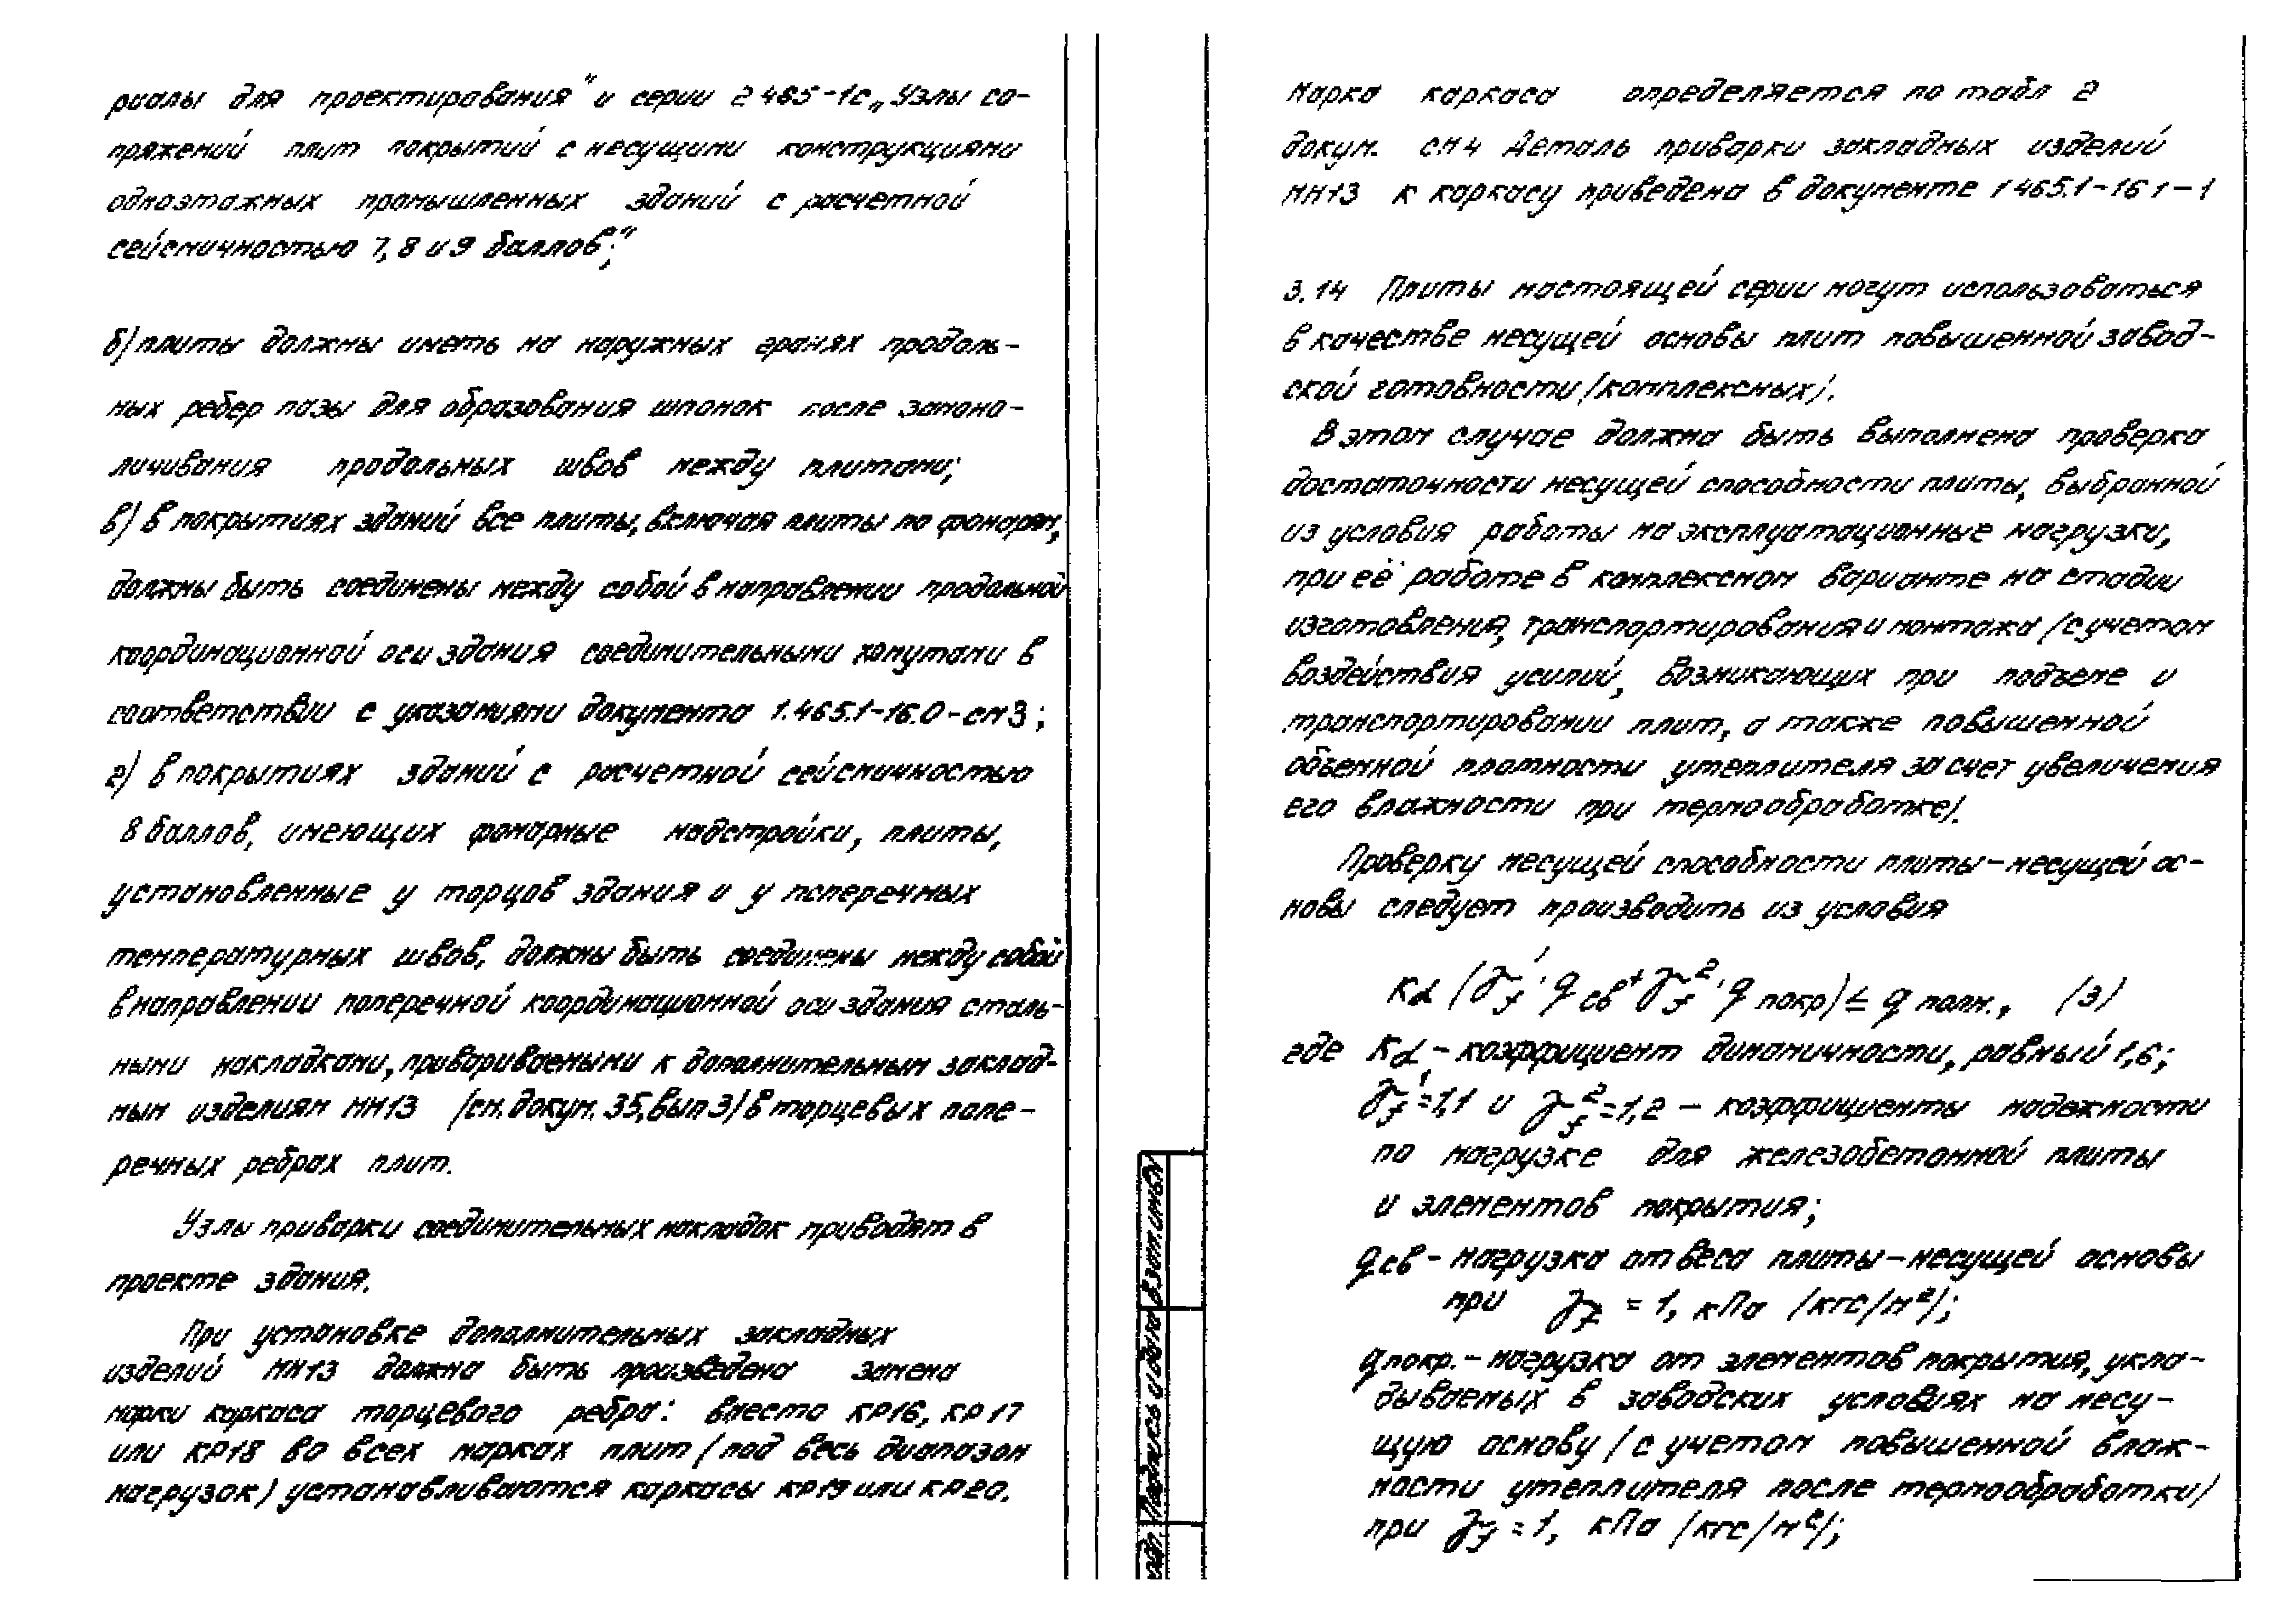 риалы для проектирования" и серии 2 465-1с „Узлы со-
пряжений плит покрытий с несущими конструкциями
одноэтажных промышленных зданий с расчетной
сейсмичностью 7, 8 и 9 баллов";
б) плиты должны иметь на наружных гранях продоль-
ных ребер пазы для образования шпонок после замоно-
личивания продольных швов между плитами;
в) в покрытиях зданий все плиты, включая плиты по фонарям,
должны быть соединены между собой в направлении продольной
координационной оси здания соединительными хомутами в
соответствии с указаниями документа 1.465.1-16.0-см3;
г) в покрытиях зданий с расчетной сейсмичностью
8 баллов, имеющих фонарные надстройки, плиты,
установленные у торцов здания и у поперечных
температурных швов, должны быть соединены между собой
в направлении поперечной координационной оси здания сталь-
ными накладками, привариваемыми к дополнительным заклад-
ным изделиям МН13 (см. докум. 35, вып 3) в торцевых попе-
речных ребрах плит.
Узлы приварки соединительных накладок приводят в
проекте здания.
При установке дополнительных закладных
изделий МН13 должна быть произведена замена
марки каркаса торцевого ребра: вместо КР16, КР17
или КР18 во всех марках плит (под весь диапазон
нагрузок) устанавливаются каркасы КР19 или КР20.
Подпись и дата Взам. инв №
Марка каркаса определяется по табл 2
докум. см 4 Деталь приварки закладных изделий
МН13 к каркасу приведена в документе 1 465.1-16 1-1
3.14 Плиты настоящей серии могут использоваться
в качестве несущей основы плит повышенной завод-
ской готовности (комплексных).
В этом случае должна быть выполнена проверка
достаточности несущей способности плиты, выбранной
из условия работы на эксплуатационные нагрузки,
при её работе в комплексном варианте на стадии
изготовления, транспортирования и монтажа (с учетом
воздействия усилий, возникающих при подъеме и
транспортировании плит, а также повышенной
объемной плотности утеплителя за счет увеличения
его влажности при термообработке).
Проверку несущей способности плиты-несущей ос-
новы следует производить из условия
Kd (γf¹·qсв+γf²·qпокр) ≤ qполн., (3)
где Kd - коэффициент динамичности, равный 1,6;
γf¹=1,1 и γf²=1,2 - коэффициенты надежности
по нагрузке для железобетонной плиты
и элементов покрытия;
qсв - нагрузка от веса плиты-несущей основы
при γf = 1, кПа (кгс/м²);
qпокр. - нагрузка от элементов покрытия, укла-
дываемых в заводских условиях на несу-
щую основу (с учетом повышенной влаж-
ности утеплителя после термообработки)
при γf = 1, кПа (кгс/м²);